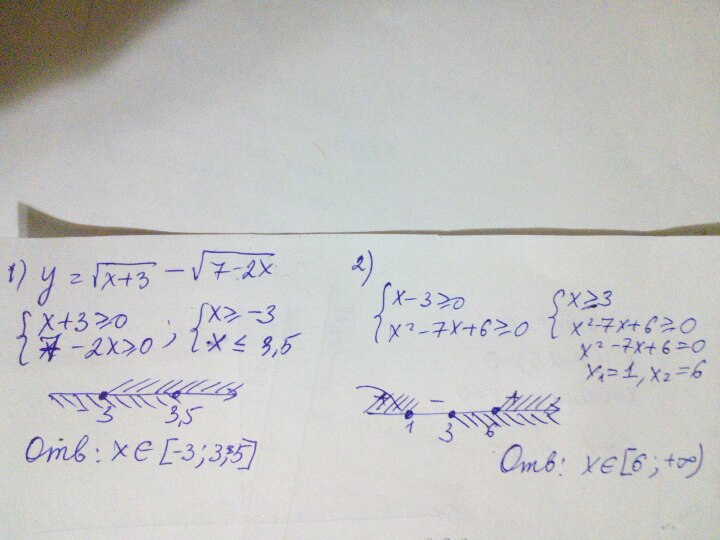 1) y = √x+3 − √7-2x
{x+3≥0 ; {x≥ -3
{7 -2x≥0 {x ≤ 3,5
3 3,5
Отв: x ∈ [-3; 3,5]
2)
{x-3≥0 {x≥3
{x²-7x+6≥0 {x²-7x+6≥0
x²-7x+6=0
x₁=1, x₂=6
+ − +
1 3 6
Отв: x∈[6; +∞)